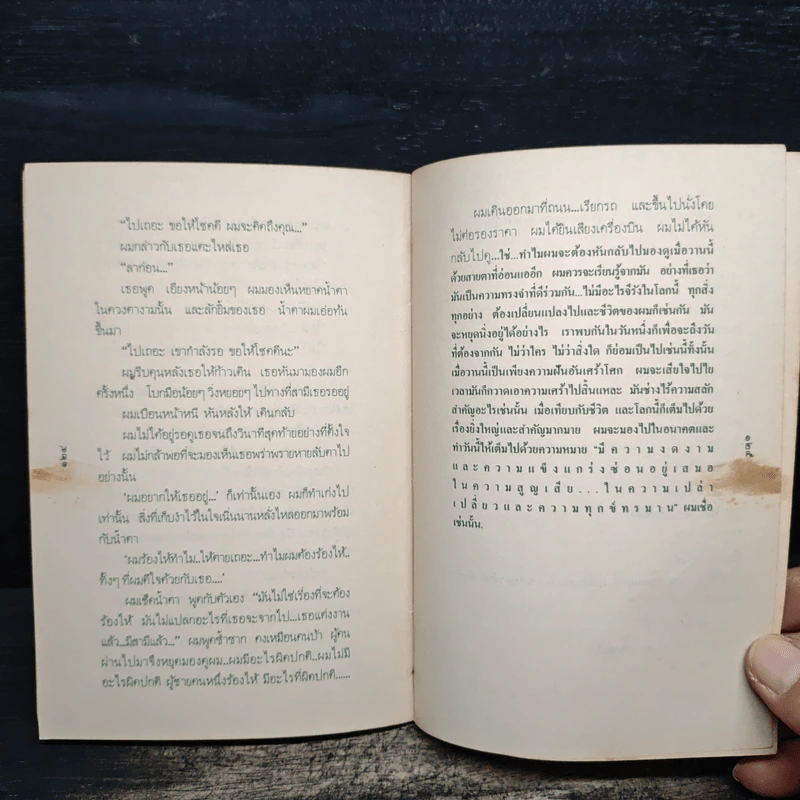 “ไปเถอะ ขอให้โชคดี ผมจะคิดถึงคุณ...”
ผมกล่าวกับเธอแตะไหล่เธอ
“ลาก่อน...”
เธอพูด เอียงหน้าน้อยๆ ผมมองเห็นหยาดน้ำตา
ในดวงตางามนั้น และลักยิ้มของเธอ น้ำตาผมเอ่อทัน
ขึ้นมา
“ไปเถอะ เขากำลังรอ ขอให้โชคดีนะ”
ผมรีบดุนหลังเธอให้ก้าวเดิน เธอหันมามองผมอีก
ครั้งหนึ่ง โบกมือน้อยๆ วิ่งหยอยๆ ไปทางที่สามีเธอรออยู่
ผมเบือนหน้าหนี หันหลังให้ เดินกลับ
ผมไม่ได้อยู่รอดูเธอจนถึงวินาทีสุดท้ายอย่างที่ตั้งใจ
ไว้ ผมไม่กล้าพอที่จะมองเห็นเธอพร่าพรายหายลับตาไป
อย่างนั้น
‘ผมอยากให้เธออยู่...’ ก็เท่านั้นเอง ผมก็ทำเก่งไป
เท่านั้น สิ่งที่เก็บงำไว้ในใจเนิ่นนานหลั่งไหลออกมาพร้อม
กับน้ำตา
‘ผมร้องไห้ทำไม..ให้ตายเถอะ...ทำไมผมต้องร้องไห้..
ทั้งๆ ที่ผมดีใจด้วยกับเธอ....’
ผมเช็ดน้ำตา พูดกับตัวเอง “มันไม่ใช่เรื่องที่จะต้อง
ร้องไห้ มันไม่แปลกอะไรที่เธอจะจากไป...เธอแต่งงาน
แล้ว...มีสามีแล้ว...” ผมพูดซ้ำซาก คงเหมือนคนบ้า ผู้คน
ผ่านไปมาจึงหยุดมองดูผม..ผมมีอะไรผิดปกติ..ผมไม่มี
อะไรผิดปกติ ผู้ชายคนหนึ่งร้องไห้ มีอะไรที่ผิดปกติ......
๑๒๙
ผมเดินออกมาที่ถนน...เรียกรถ และขึ้นไปนั่งโดย
ไม่ต่อรองราคา ผมได้ยินเสียงเครื่องบิน ผมไม่ได้หัน
กลับไปดู...ใช่...ทำไมผมจะต้องหันกลับไปมองดูเมื่อวานนี้
ด้วยสายตาที่อ่อนแออีก ผมควรจะเรียนรู้จากมัน อย่างที่เธอว่า
มันเป็นความทรงจำที่ดีร่วมกัน...ไม่มีอะไรจีรังในโลกนี้ ทุกสิ่ง
ทุกอย่าง ต้องเปลี่ยนแปลงไปและชีวิตของผมก็เช่นกัน มัน
จะหยุดนิ่งอยู่ได้อย่างไร เราพบกันในวันหนึ่งก็เพื่อจะถึงวัน
ที่ต้องจากกัน ไม่ว่าใคร ไม่ว่าสิ่งใด ก็ย่อมเป็นไปเช่นนี้ทั้งนั้น
เมื่อวานนี้เป็นเพียงความฝันอันเศร้าโศก ผมจะเสียใจไปไย
เวลามันก็กวาดเอาความเศร้าไปสิ้นแหละ มันช่างไร้ความสลัก
สำคัญอะไรเช่นนั้น เมื่อเทียบกับชีวิต และโลกนี้ก็เต็มไปด้วย
เรื่องยิ่งใหญ่และสำคัญมากมาย ผมจะมองไปในอนาคตและ
ทำวันนี้ให้เต็มไปด้วยความหมาย “มีความงดงาม
และความแข็งแกร่งซ่อนอยู่เสมอ
ในความสูญเสีย...ในความเปล่า
เปลี่ยวและความทุกข์ทรมาน” ผมเชื่อ
เช่นนั้น.